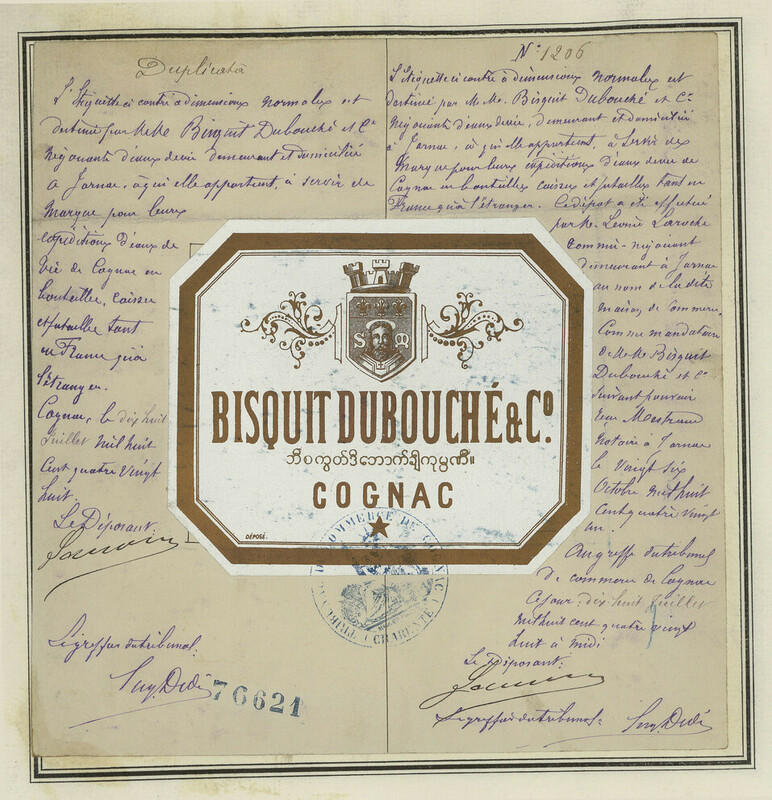 Duplicata
L'étiquette ci contre à dimensions normales est
destinée par M.M. Bisquit Dubouché et Cie
négociants d'eaux de vie demeurant et domiciliés
à Jarnac, à qui elle appartient, à servir de
marque pour leurs
expéditions d'eaux de
vie de Cognac en
bouteilles, caisses
et futailles tant
en France qu'à
l'étranger.
Cognac, le dix huit
Juillet mil huit
cent quatre vingt
huit.
Le Déposant.
Le greffier du tribunal.
76621
No 1206
L'étiquette ci contre à dimensions normales est
destinée par M.M. Bisquit Dubouché et Cie
négociants d'eaux de vie, demeurant et domiciliés
à Jarnac, à qui elle appartient, à servir de
marque pour leurs expéditions d'eaux de vie de
Cognac en bouteilles caisses et futailles tant en
France qu'à l'étranger. Ce dépôt a été effectué
par M. Léonce Laroche
commis-négociant
demeurant à Jarnac
au nom de la dite
maison de commerce,
comme mandataire
de M.M. Bisquit
Dubouché et Cie
suivant pouvoir
reçu Mestreau
notaire à Jarnac
le vingt six
Octobre mil huit
cent quatre vingt
un.
Au greffe du tribunal
de commerce de Cognac
ce jour: dix huit Juillet
mil huit cent quatre vingt
huit à midi
Le Déposant.
Le greffier du tribunal.
S M
BISQUIT DUBOUCHÉ & Co.
ဘီစကွတ်ဒီဘောက်ချီကုမ္ပဏီ။
COGNAC
DÉPOSÉ.
TRIBUNAL DE COMMERCE DE COGNAC (CHARENTE)